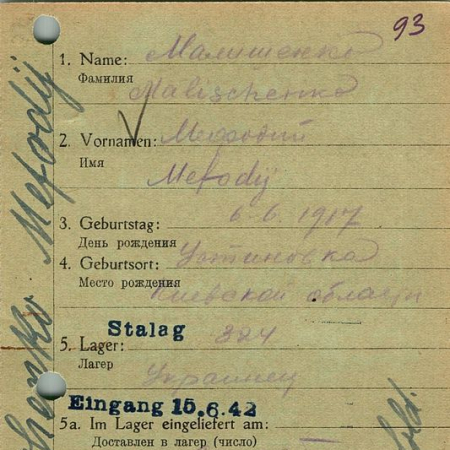 93
1. Name: Малишенко
Фамилия
Malischenko
2. Vornamen: Мефодий
Имя
Mefodij
3. Geburtstag: 6.6.1917
День рождения
4. Geburtsort: Устиновка
Место рождения
Киевской области
Stalag 324
5. Lager:
Лагерь
Украинец
Eingang 15.6.42
5a. Im Lager eingeliefert am:
Доставлен в лагерь (число)
Mefodij